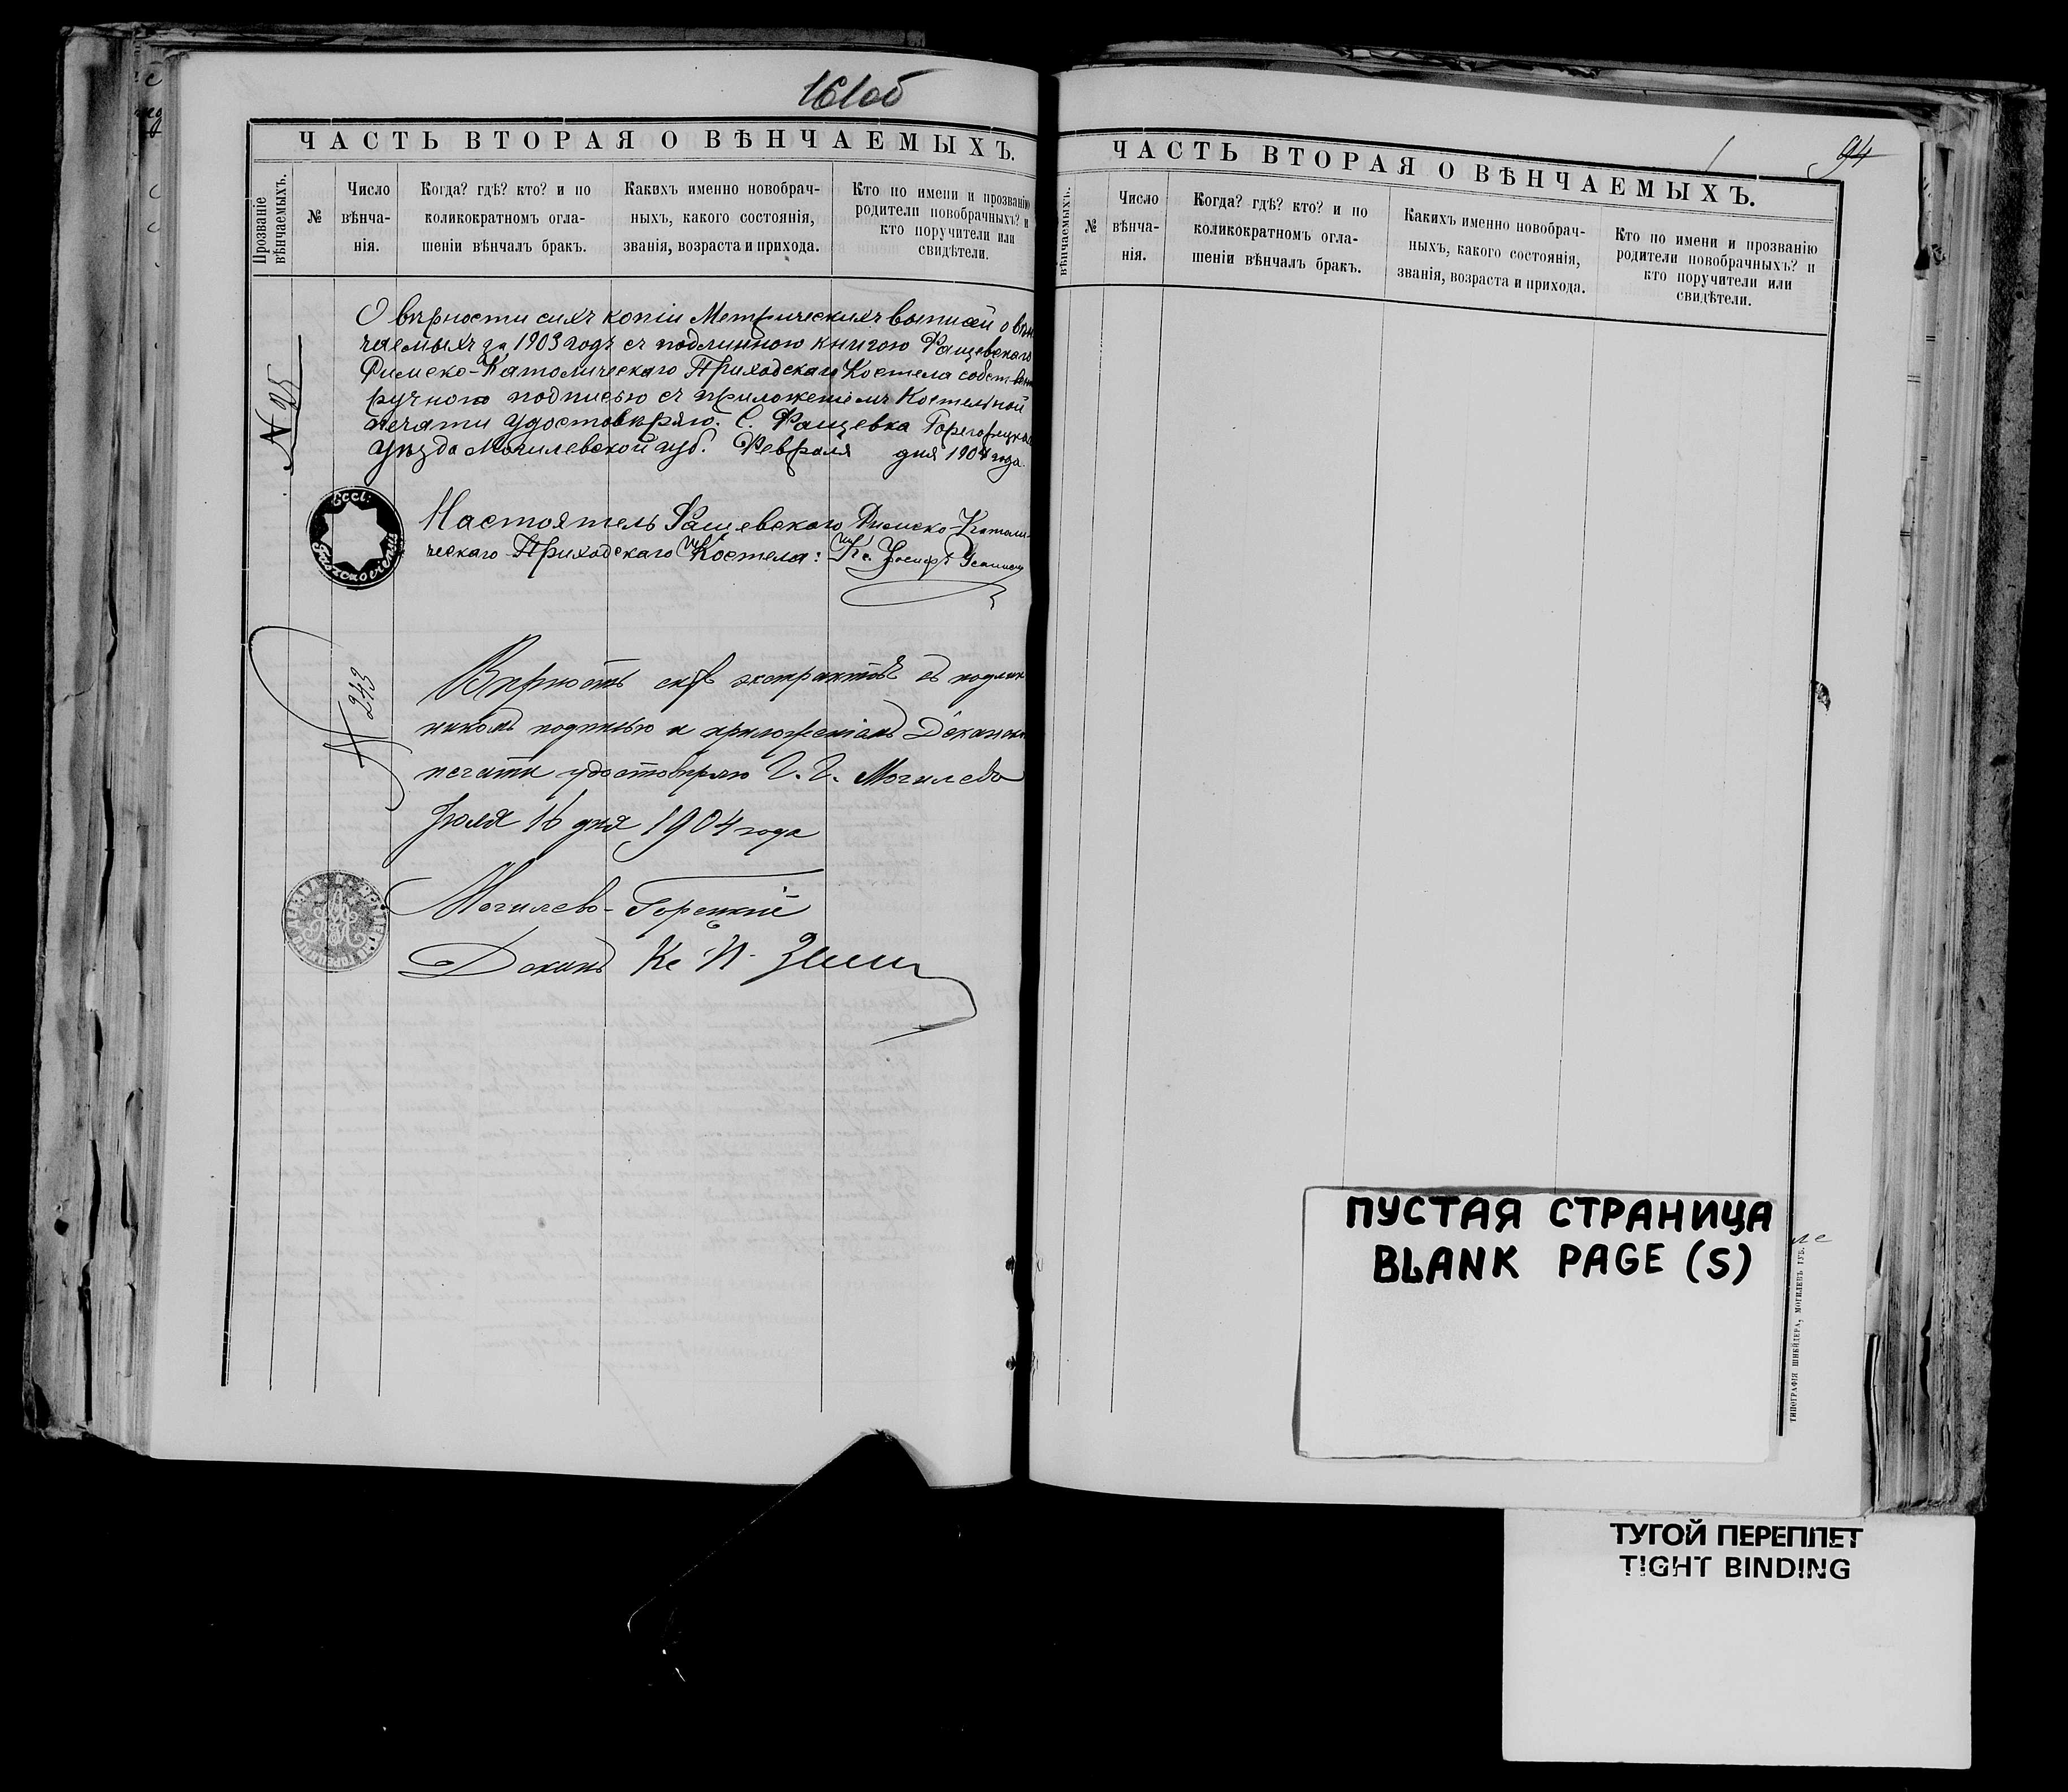 161об
ЧАСТЬ ВТОРАЯ О ВѢНЧАЕМЫХЪ.
Прозваніе вѣнчаемыхъ.
№
Число
вѣнча-
нія.
Когда? гдѣ? кто? и по
коликократномъ огла-
шеніи вѣнчалъ бракъ.
Какихъ именно новобрач-
ныхъ, какого состоянія,
званія, возраста и прихода.
Кто по имени и прозванію
родители новобрачныхъ? и
кто поручители или
свидѣтели.
N 25
О вѣрности сихъ копіи Метрическихъ выписей о вѣн
чаемыхъ за 1903 годъ съ подлинною книгою Фащевскаго
Римско-Католическаго Приходскаго Костела собствен
ручною подписью съ приложеніемъ Костельной
печати удостовѣряю. С. Фащевка
уѣзда Могилевской губ. Февраля дня 1904 года
Настоятель Фащевскаго Римско-Католи-
ческаго Приходскаго Костела: Кс. Іосифъ
N 243
Вѣрность сих экстрактовъ съ подлин
никомъ подписью и приложеніемъ Деканск
печати удостовѣряю Г. Г. Могилевъ
Іюля 16 дня 1904 года
Могилево-Горецкій
Деканъ Кс
94
ЧАСТЬ ВТОРАЯ О ВѢНЧАЕМЫХЪ.
вѣнчаемыхъ.
№
Число
вѣнча-
нія.
Когда? гдѣ? кто? и по
коликократномъ огла-
шеніи вѣнчалъ бракъ.
Какихъ именно новобрач-
ныхъ, какого состоянія,
званія, возраста и прихода.
Кто по имени и прозванію
родители новобрачныхъ? и
кто поручители или
свидѣтели.
ПУСТАЯ СТРАНИЦА
BLANK PAGE (S)
ТИПОГРАФІЯ ШНЕЙДЕРА, МОГИЛЕВЪ ГУБ.
ТУГОЙ ПЕРЕПЛЕТ
TIGHT BINDING